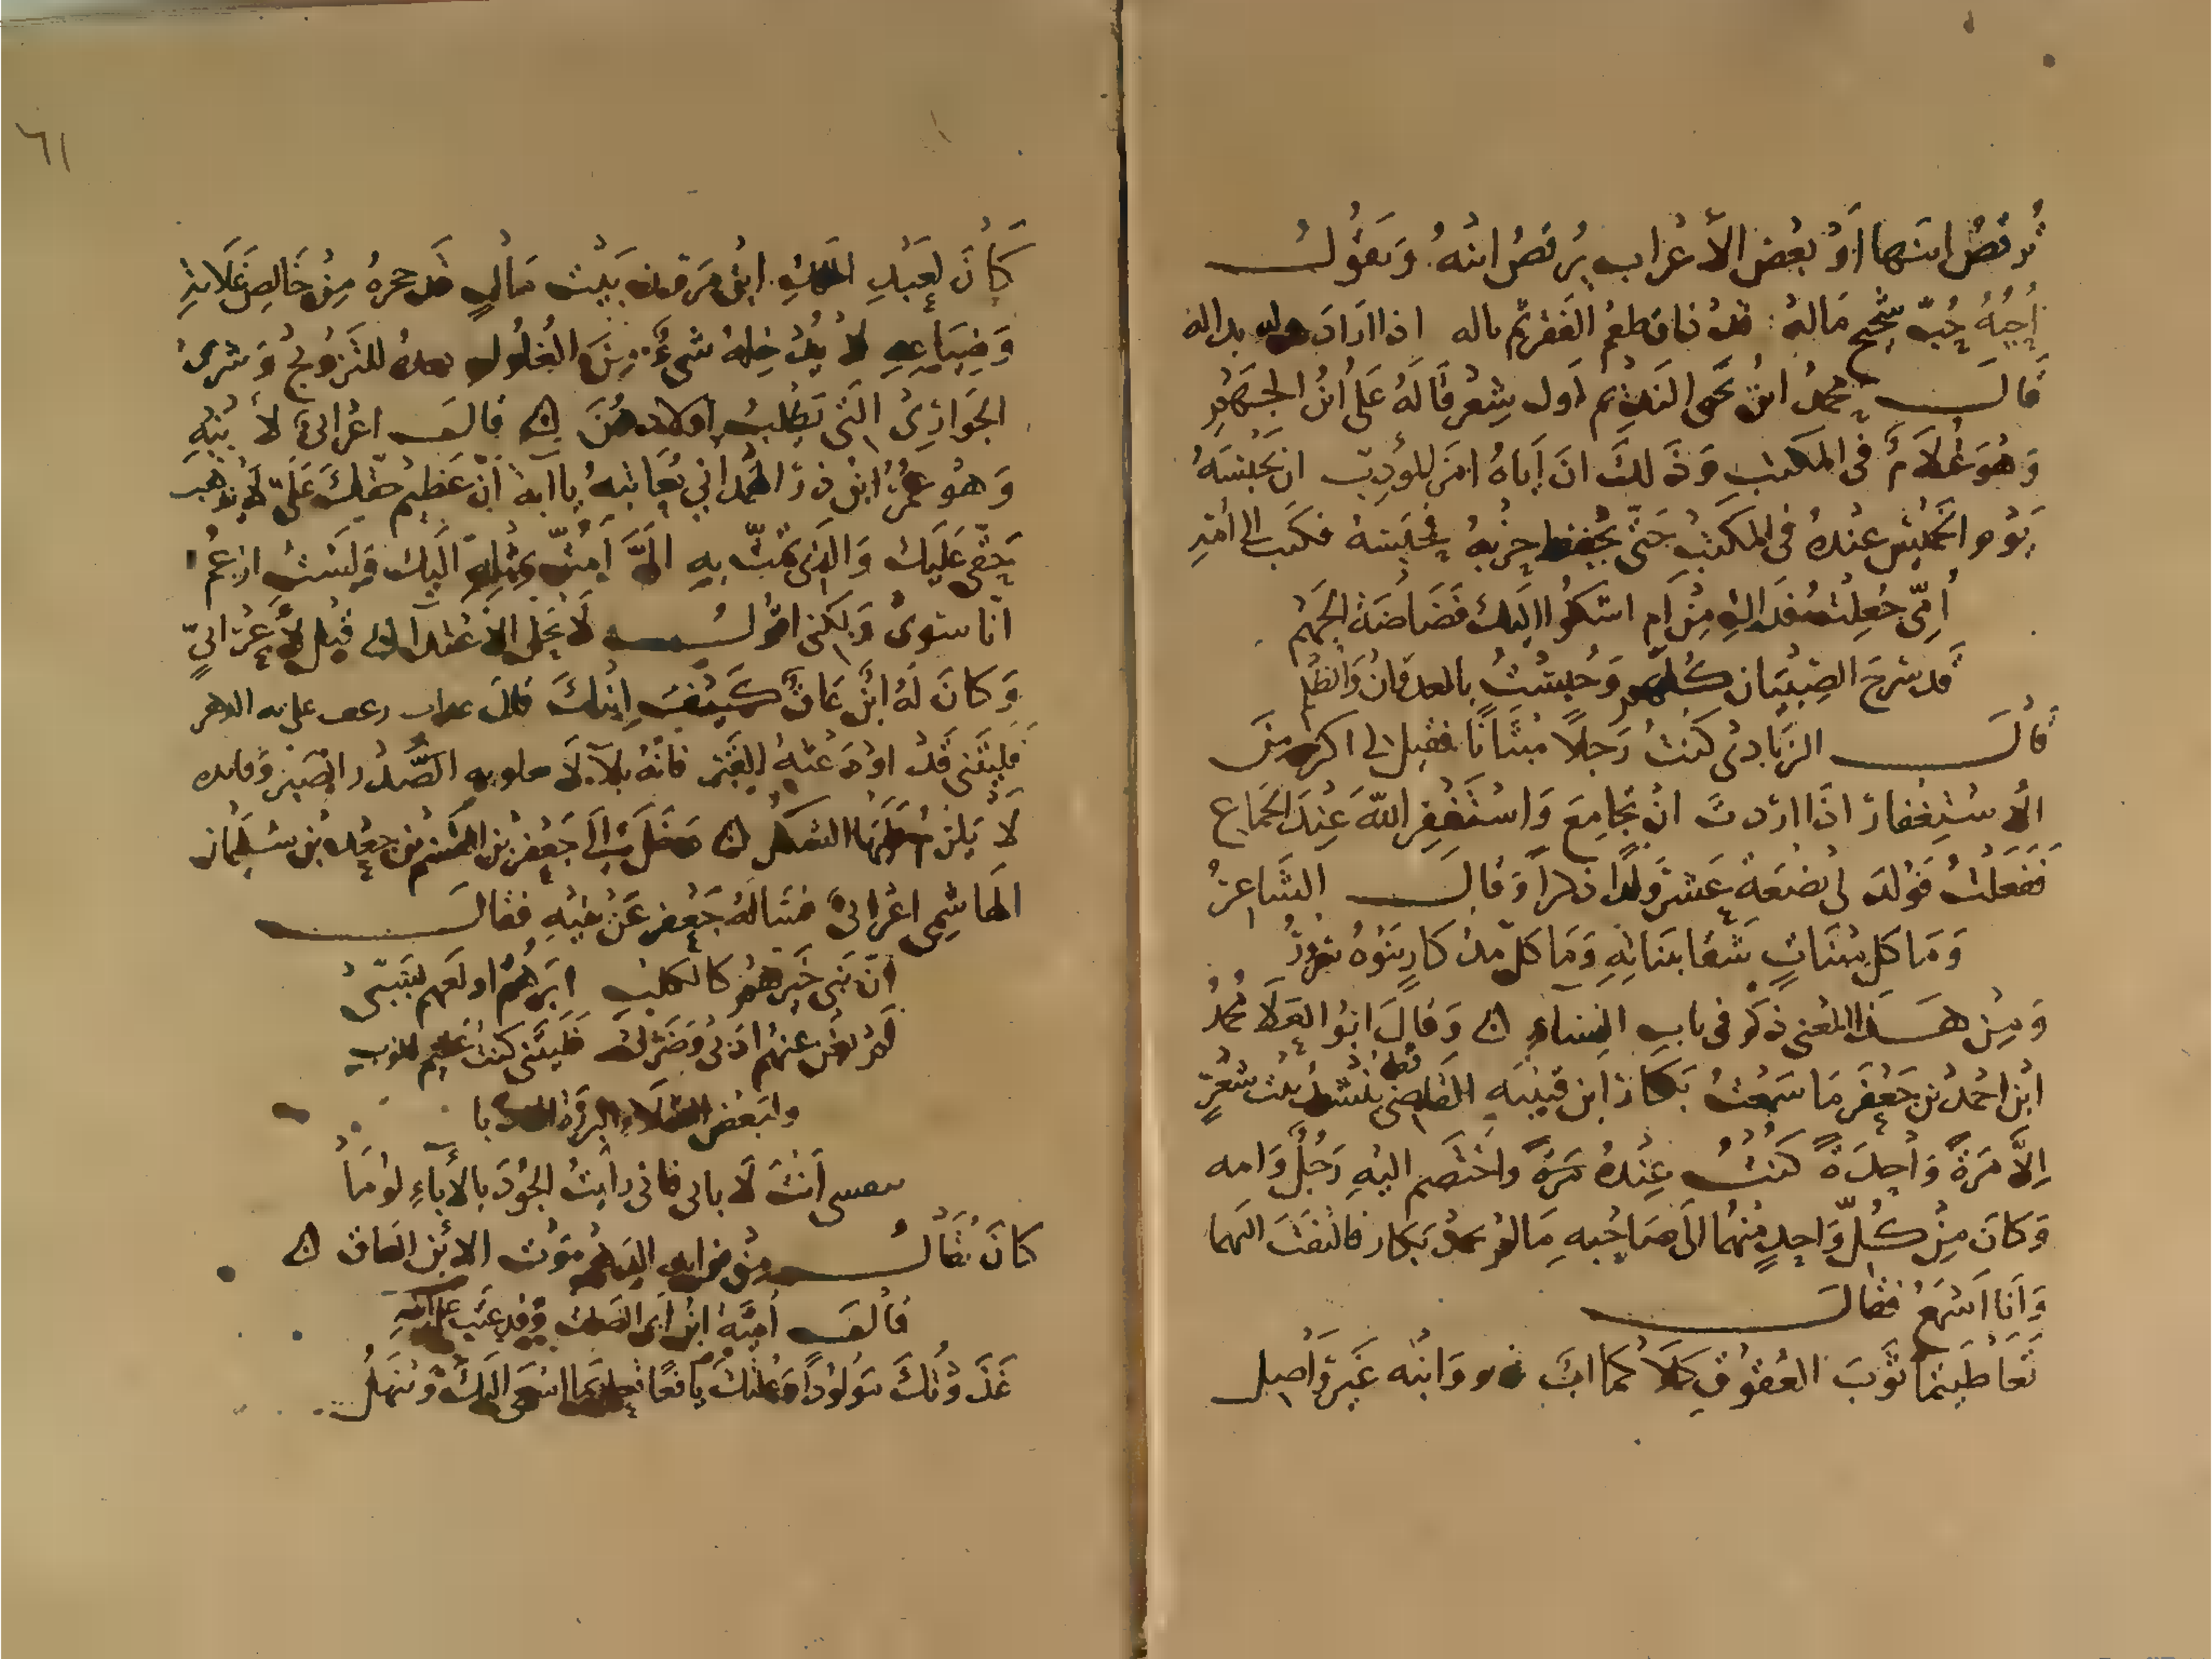 ترقص ابنها او بعض الأعراب يرقص ابنه ويقول
أحبه حب شحيح ماله قد ذاق طعم الفقر ثم ناله اذا اراد بذله بدا له
قال محمد ابن يحيى النديم اول شعر قاله على ابن الجهم
وهو غلام في المكتب وذلك ان أباه امر المؤدب ان يحبسه
يوم الخميس عنده في المكتب حتى يحفظ حزبه فحبسه فكتب الى امه
أمي جعلت فداك من أم اشكوا اليك فضاضة الجهم
قد سرح الصبيان كلهم وحبست بالعدوان والظلم
قال الزيادي كنت رجلا مئناثا فقيل لي اكثر من
الاستغفار اذا اردت ان تجامع واستغفر الله عند الجماع
ففعلت فولد لي بضعة عشر ولدا ذكرا وقال الشاعر
وما كل مئناث شقا ببناته وما كل مذكار بنوه
ومن هذا المعنى ذكر في باب النساء وقال ابو العلا محمد
ابن احمد بن جعفر ما سمعت بكار ابن قتيبه القاضي قط ينشد بيت شعر
إلا مرة واحدة كنت عنده مرة واختصم اليه رجل وامه
وكان من كل واحد منهما الى صاحبه ما لم بكار فالتفت اليهما
وانا اسمع فقال
تعاطيتما ثوب العقوق كلاكما اب غير بر وابنه غير واصل
٦١
كان لعبد الملك ابن مروان بيت مال قد من خالص غلاته
وضياعه لا يدخله شيء من الغلول يعده للتزويج وشرى
الجوارى التى يطلب اولادهن قال اعرابي لابنه
وهو عمر ابن ذر الهمداني يعاتبه يا ابة ان عظيم حقك على لا يذهب
حقي عليك والذى تمت به الي امت بمثله اليك ولست ازعم
انا سوى ولكنى اقول لا يحل الاعتدا قيل لأعرابي
وكان له ابن عاق كيف ابنك قال عذاب رعف عليه الدهر
فليتني قد اودعته القبر فانه بلآ لا يقاومه الصبر وفائده
لا يلزم الشكر دخل الى جعفر بن القسم بن جعفر بن سليمان
الهاشمي اعرابي فسأله جعفر عن بنيه فقال
ان بني خيرهم كالكلب ابرهم اولعهم بسبي
لم يغن عنهم ادبى وضربي فليتنى كنت عقيم الصلب
ولبعض
بنفسي أنت لا بابى فانى رأيت الجود بالأباء لوما
كان يقال من فوايد الدهر موت الابن العاق
قال أمية ابن ابى الصلت وقد عتب على ابنه
غذوتك مولودا وعلتك يافعا تعل بما اسعى اليك وتنهل